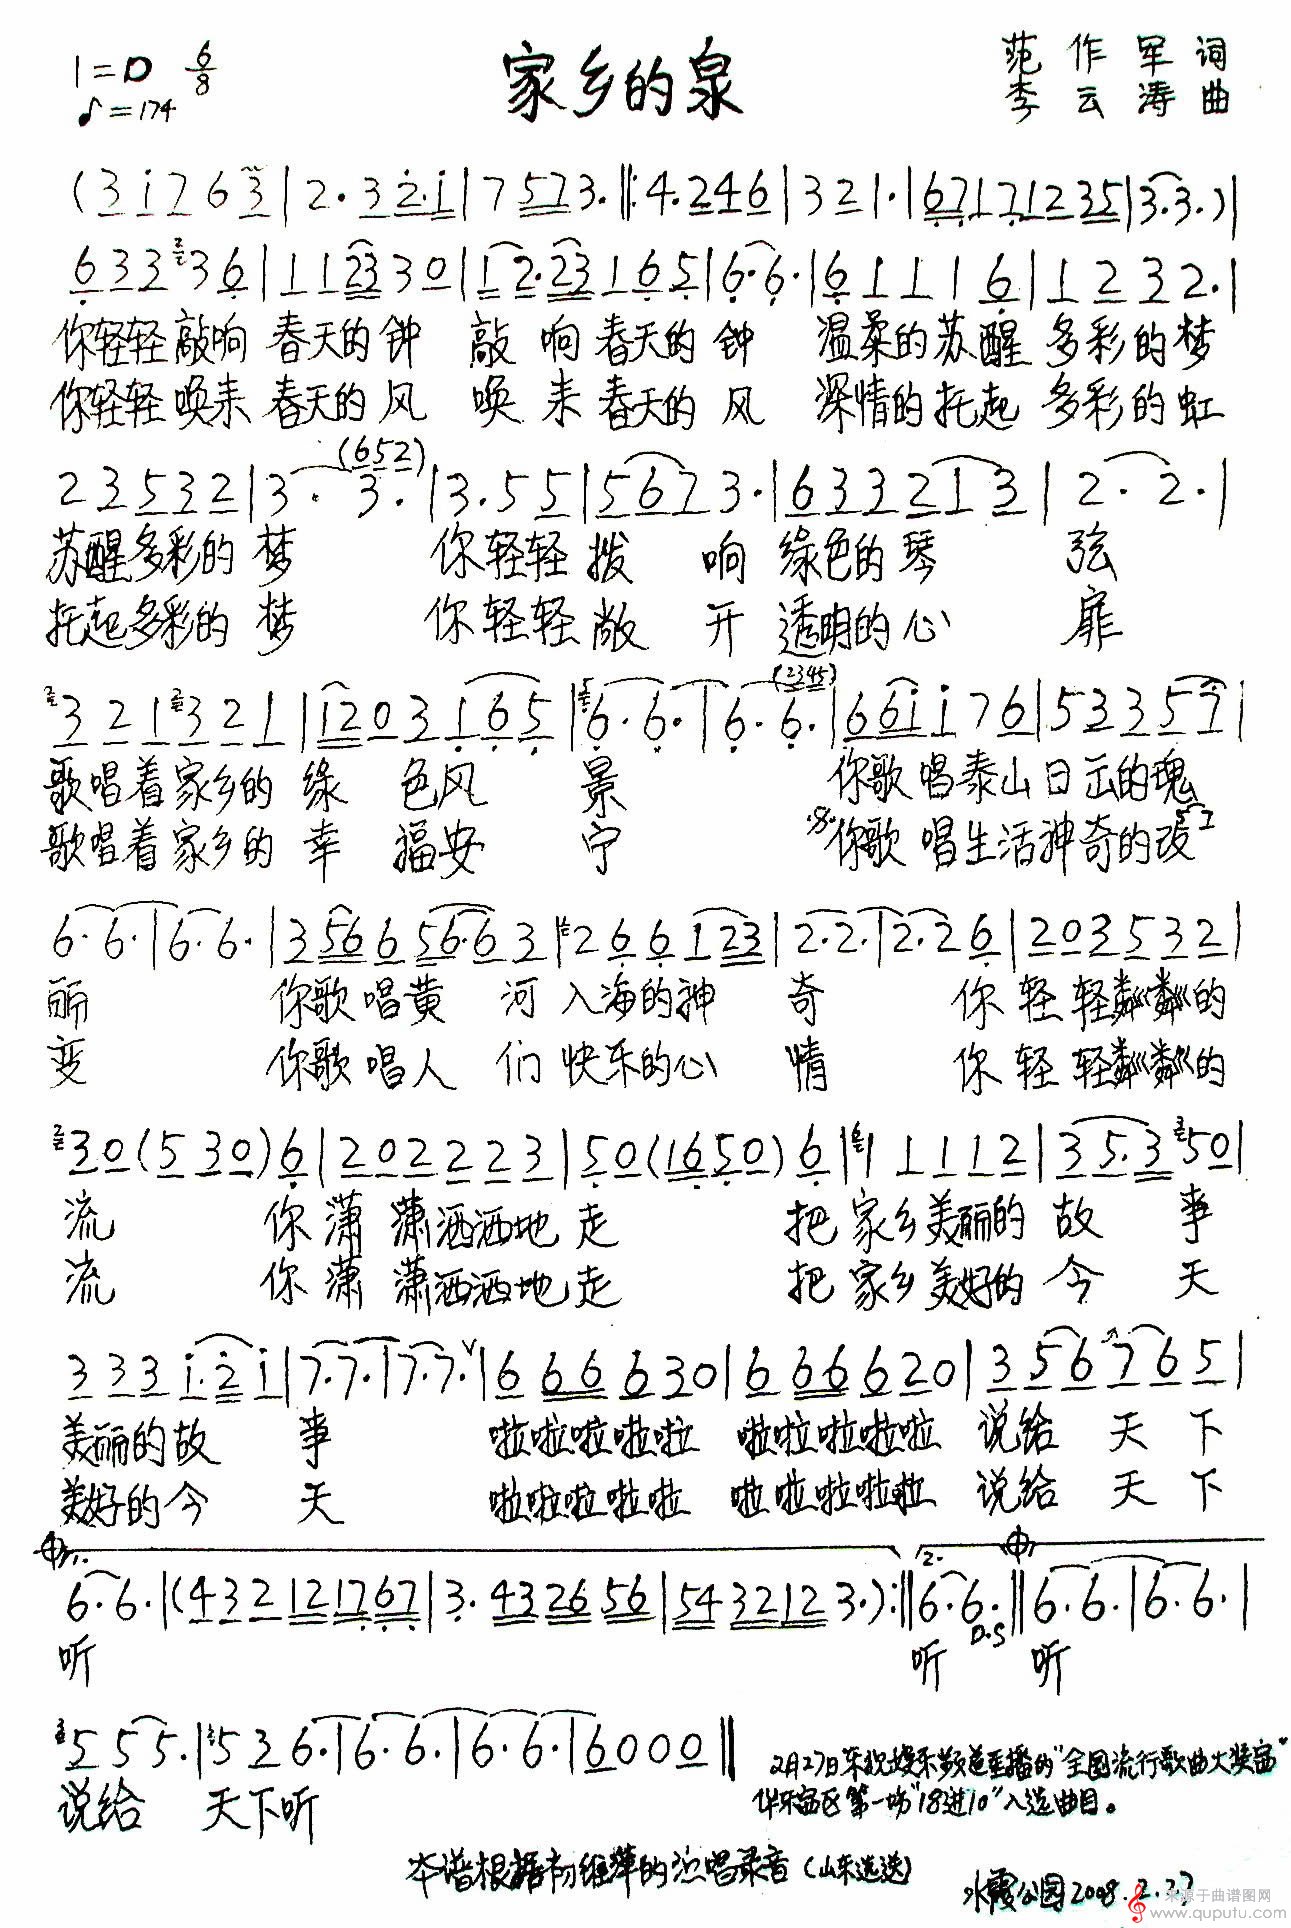 1=D 6/8
♪=174
家乡的泉
范作军 词
李云涛 曲
(3 i 7 6 3 | 2· 3 2·i | 7 5 7 3· ‖: 4· 2 4 6 | 3 2 1· | 6 7 1 7 1 2 3 5 | 3· 3·) |
6 3 3 3 6 | 1 1 2 3 3 0 | 1 2· 2 3 1 6 5 | 6· 6· | 6 1 1 1 6 | 1 2 3 2· |
你轻轻敲响 春天的钟 敲响春天的钟 温柔的苏醒 多彩的梦
你轻轻唤来 春天的风 唤来春天的风 深情的托起 多彩的虹
(6 5 2)
2 3 5 3 2 | 3· 3· | 3· 5 5 | 5 6 7 3· | 6 3 3 2 1 3 | 2· 2· |
苏醒多彩的梦 你轻轻拨响 绿色的琴弦
托起多彩的梦 你轻轻敞开 透明的心扉
(2 3 4 5)
3 2 1 3 2 1 | 1 2 0 3 1 6 5 | 6· 6· | 6· 6· | 6 6 i i 7 6 | 5 3 3 5 7 |
歌唱着家乡的绿色风景 你歌唱泰山日出的瑰
歌唱着家乡的幸福安宁 你歌唱生活神奇的改
6· 6· | 6· 6· | 3 5 6 6 5 6· 6 3 | 2 6 6 1 2 3 | 2· 2· | 2· 2 6 | 2 0 3 5 3 2 |
丽 你歌唱黄河入海的神奇 你轻轻粼粼的
变 你歌唱人们快乐的心情 你轻轻粼粼的
3 0 (5 3 0) 6 | 2 0 2 2 2 3 | 5 0 (1 6 5 0) 6 | 1 1 1 1 2 | 3 5· 3 5 0 |
流 你潇潇洒洒地走 把家乡美丽的故事
流 你潇潇洒洒地走 把家乡美好的今天
3 3 3 i· 2 i | 7· 7· | 7· 7· | 6 6 6 6 3 0 | 6 6 6 6 2 0 | 3 5 6 7 6 5 |
美丽的故事 啦啦啦啦啦 啦啦啦啦啦 说给天下
美好的今天 啦啦啦啦啦 啦啦啦啦啦 说给天下
1. 2.
6· 6· | (4 3 2 1 2 1 7 6 7 | 3· 4 3 2 6 5 6 | 5 4 3 2 1 2 3·) :‖ 6· 6· ‖ 6· 6· | 6· 6· |
D.S
听 听 听
5 5 5· | 5 3 6· | 6· 6· | 6· 6· | 6 0 0 0 ‖
说给 天下听
2月27日央视娱乐频道直播的"全国流行歌曲大奖赛"
华东赛区第一场"18进10"入选曲目。
本谱根据 维萍的演唱录音(山东选送)
水霞公园2008.2.27
来源于曲谱图网
www.quputu.com